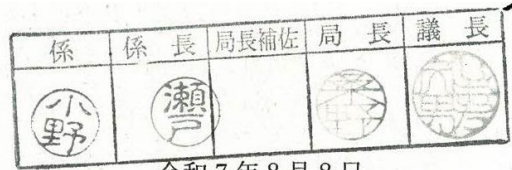 係 係長 局長補佐 局長 議長
小野 瀬戸
令和7年8月8日